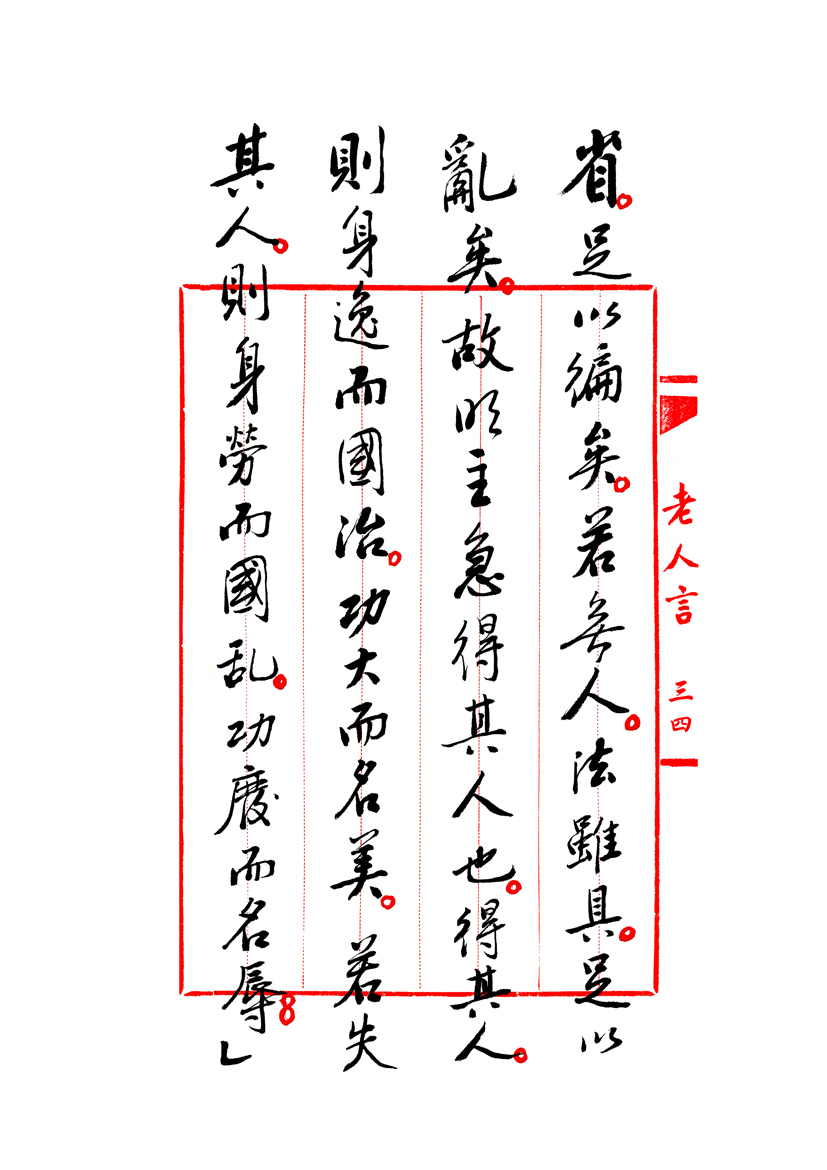 省。足以徧矣。若無人。法雖具。足以
亂矣。故明主急得其人也。得其人。
則身逸而國治。功大而名美。若失
其人。則身勞而國乱。功廢而名辱。」
老人言 三四